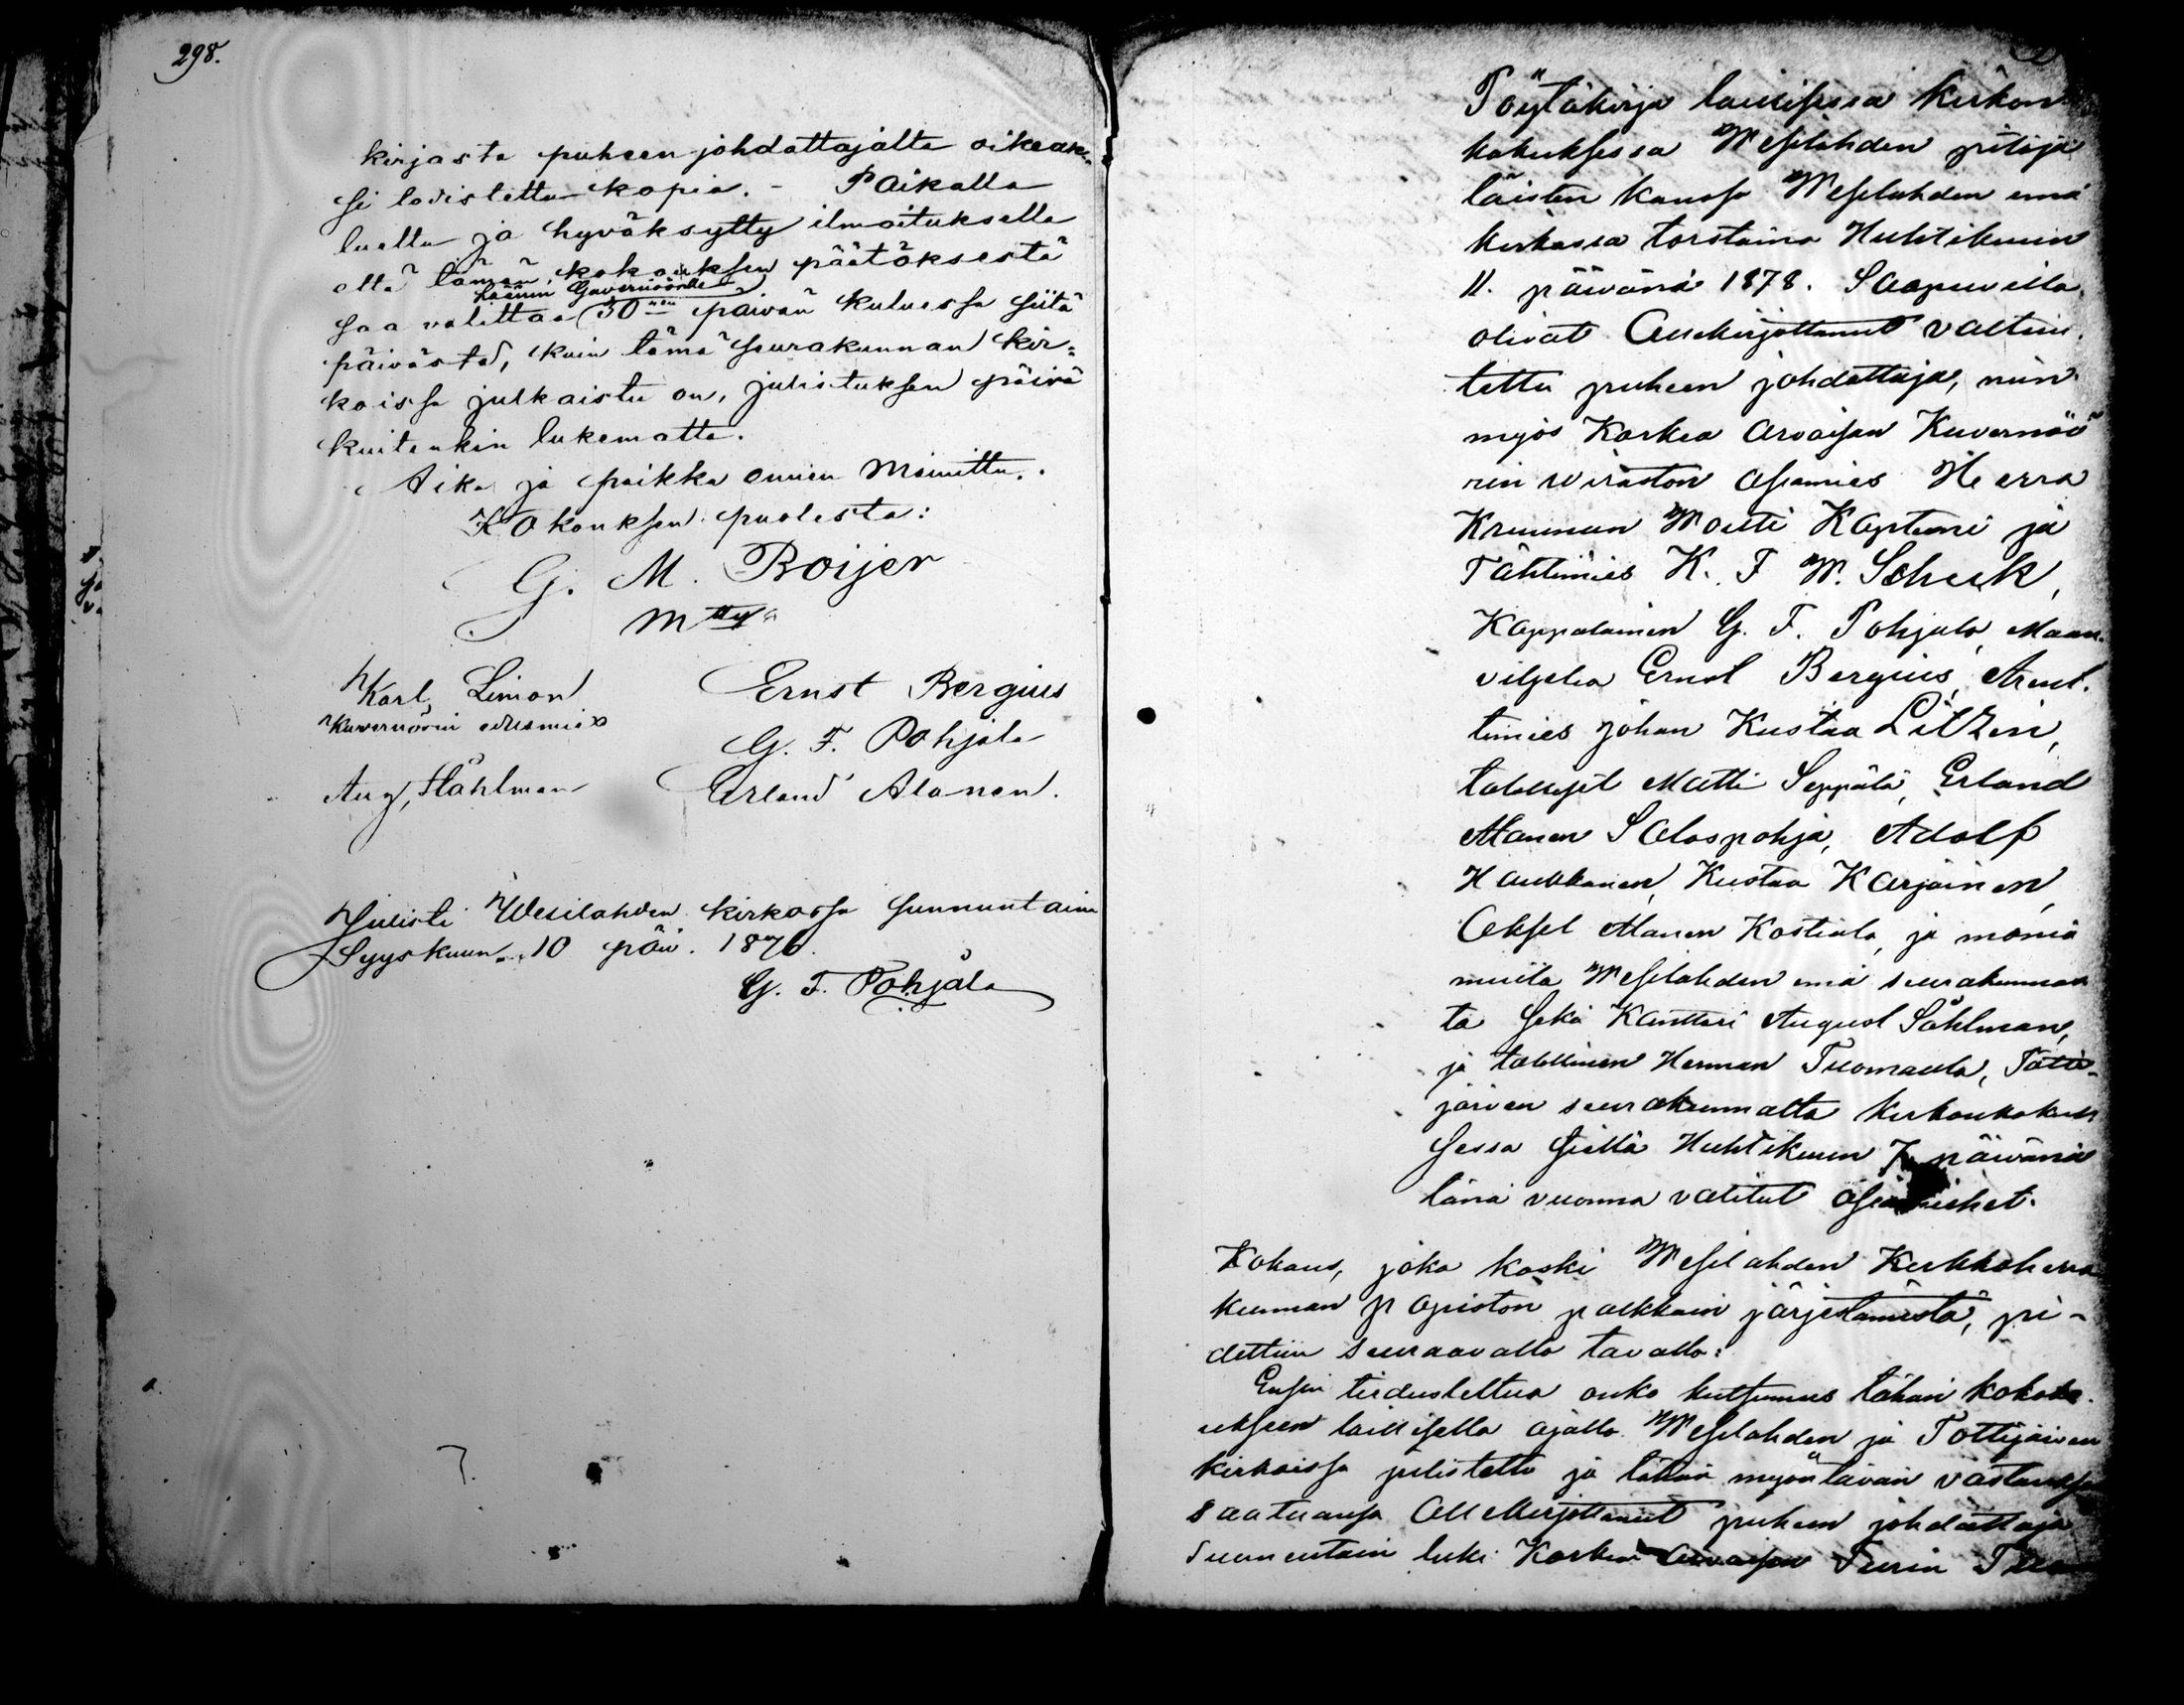 298.
kirjasta puheen johdattajalta oikeak-
si todistettu kopia. - Paikalla
luettu ja hyväksytty ilmoituksella
että tämän kokouksen päätöksestä
Läänin Guvernöörille
saa valittaa 30nen päivän kuluessa siitä
päivästä, kuin tämä seurakunnan kir=
koissa julkaistu on, julistuksen päivä
kuitenkin lukematta.
Aika ja paikka ennen mainittu.
Kokouksen puolesta:
G. M. Boijer
Karl Limon
Kuvernörin edusmies
Aug, Ståhlman
Ernst Bergius
G. F. Pohjala
Erland Alanen.
Julisti Wesilahden kirkossa sunnuntaina
Syyskuun 10 päiv. 1876.
G. F. Pohjala
Pöytäkirja laillisessa kirkon
kokouksessa Wesilahden pitäjä
läisten kanssa Wesilahden emä
kirkossa torstaina Huhtikuun
11. päivänä 1878. Saapuvilla
olivat Allekirjoittanut valtuu
tettu puheen johdattaja, niin
myös Korkea arvoisan Kuvernöö
rin viraston asiamies Herra
Kruunun Wouti Kapteeni ja
Tähtimies K. F. W. Schuk,
Kappalainen G. F. Pohjala, Maan
viljeliä Ernst Bergius, Arent.
timies Johan Kustaa Litzén,
talolliset Matti Seppälä, Erland
Alanen Salospohja, Adolf
Haukkanen, Kustaa Karjainen,
Aksel Alanen Kostiala, ja monia
muita Wesilahden emä seurakunnas
ta sekä Kanttori August Ståhlman,
ja talollinen Herman Tuomaala, Totti-
järven seurakunnalta kirkonkokouk
sessa siellä Huhtikuun 7 päivänä
tänä vuonna valitut asiamiehet.
Kokous, joka koski Wesilahden Kirkkoherra
kunnan papiston palkkain järjestämistä, pi-
dettiin seuraavalla tavalla:
Ensin tiedusteltua onko kutsumus tähän koko
ukseen laillisella ajalla Wesilahden ja Tottijärven
kirkoissa julistettu ja tähän myöntävän vastauksen
saatuansa Allekirjoittanut puheen johdattaja
Suomentain luki Korkea Arvoisan Turun